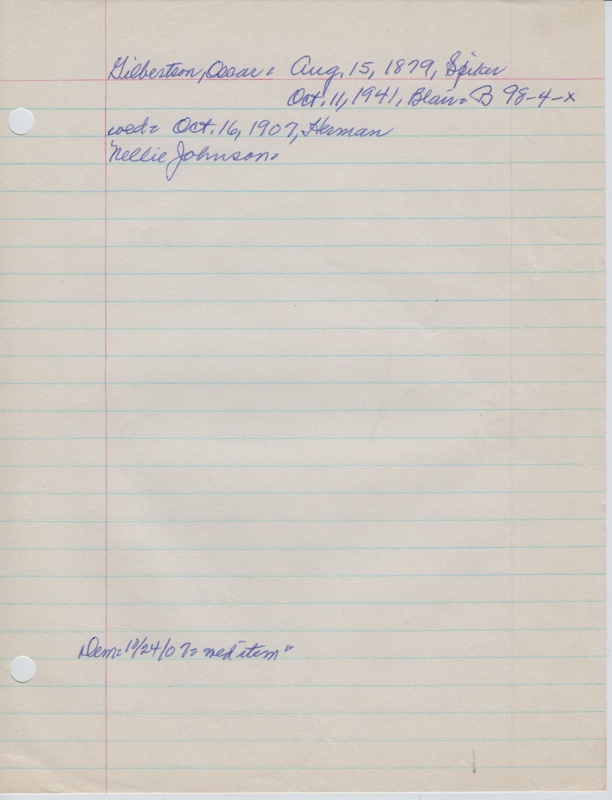 Gilbertson, Oscar = Aug. 15, 1879, Spiker
Oct. 11, 1941, Blair = B 98-4-x
wed = Oct. 16, 1907, Herman
Nellie Johnson =
Dem = 10/24/07 = wed item"